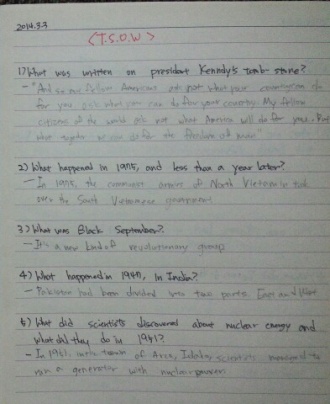 2014.3.3
<T.S.O.W>
1) What was written on president Kenndy's tomb stone?
- "And so my fellow Americans ask not what your can do
for you ask what you can do for your country. My fellow
citizens of the world ask not what America will do for you, but
what together we can do for the freedom of man"
2) What happened in 1975, and less than a year later?
- In 1975, the communist armies of North Vietnam took
over the South Vietnamese government
3) What was Black September?
- It's a new kind of revolutionary group
4) What happened in 1947, in India?
- Pakistan had been divided into two parts. East and West
5) What did scientists discovered about nuclear energy and
what did they do in 1941?
- In 1961, town of Arco, Idaho, scientists managed to
run a generator with nuclear power